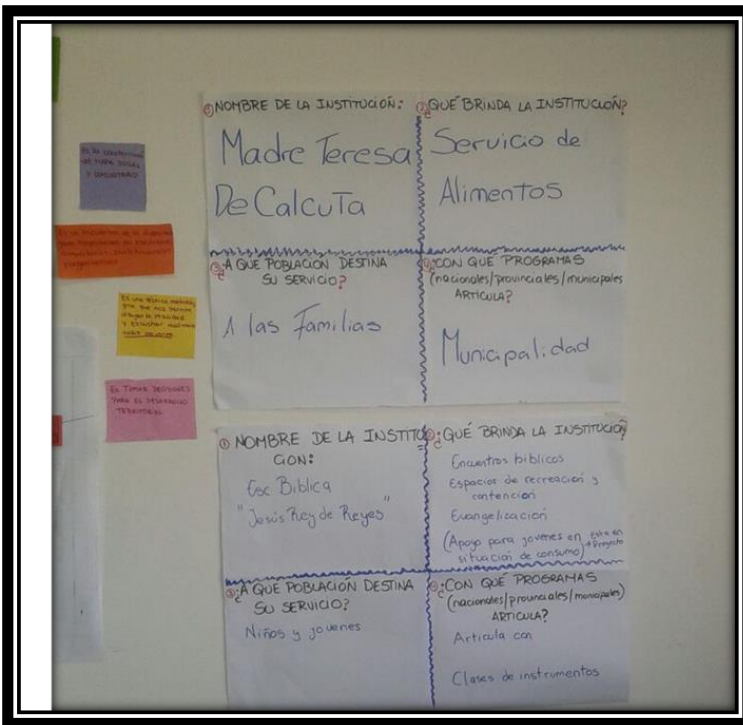 ① NOMBRE DE LA INSTITUCIÓN:
Madre Teresa
De Calcuta
② QUÉ BRINDA LA INSTITUCIÓN?
Servicio de
Alimentos
③ A QUE POBLACIÓN DESTINA
SU SERVICIO?
A las Familias
④ CON QUE PROGRAMAS
(nacionales/provinciales/municipales
ARTICULA?
Municipalidad
① NOMBRE DE LA INSTITU
CION:
Esc Biblica
"Jesús Rey de Reyes"
② ¿QUÉ BRINDA LA INSTITUCIÓN
Encuentros biblicos
Espacios de recreación y
contención
Evangelicación
(Apoyo para jovenes en esta en
situación de consumo) Proyecto
③ ¿A QUE POBLACIÓN DESTINA
SU SERVICIO?
Niños y jovenes
④ ¿CON QUÉ PROGRAMAS
(nacionales/provinciales/municipales)
ARTICULA?
Articula con
Clases de instrumentos
ES TOMAR DECISIONES
PARA EL DESARROLLO
TERRITORIAL